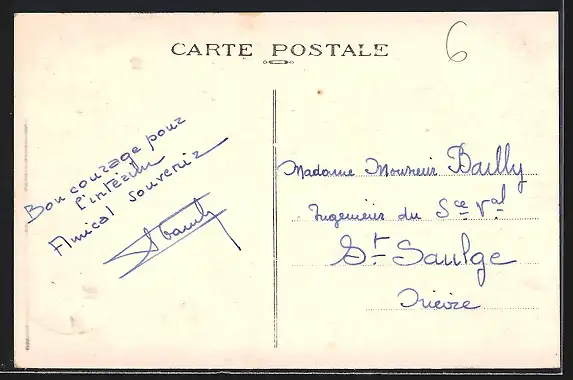 CARTE POSTALE
6
Bon courage pour
l'intérim
Amical souvenir
Madame Monsieur Bailly
Ingénieur du Sce Val
St Saulge
Nièvre